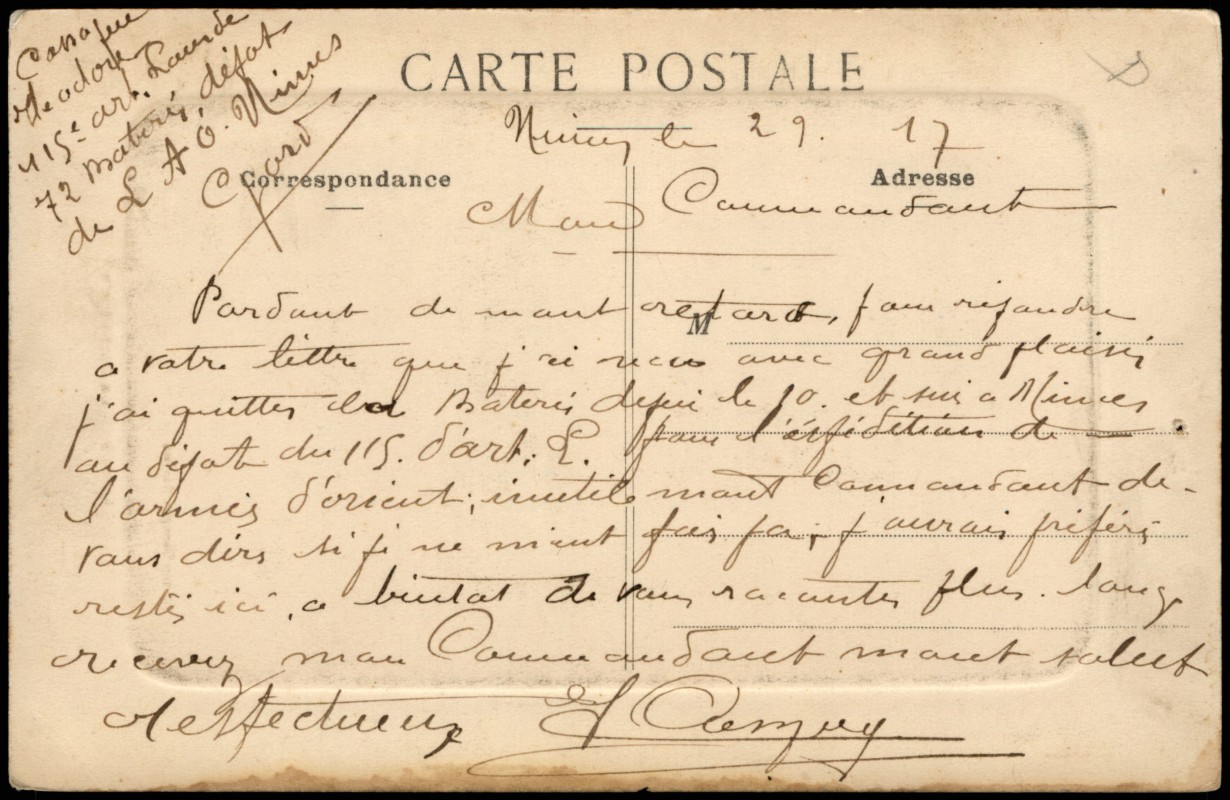 Teodore
115e art. Lourde
72 Baterie, dépot
de L A O. Nimes
Gard
CARTE POSTALE
Nimes le 29. 17
Correspondance
Adresse
Mon Commandant
M
Pardont de mont retard, pour répondre
a votre lettre que j'ai recu avec grand plaisir
j'ai quitter la Baterie depui le 10. et sui a Nimes
au dépot du 115. d'art. L. pour l'expédition de
l'armée d'orient; inutile mont Commandant de
vous dire si je ne m'ent fais pa; j'aurais préféré
resté ici, a bientot de vous raconter plus. long
recevez mon Commandant mont salut
respectueux